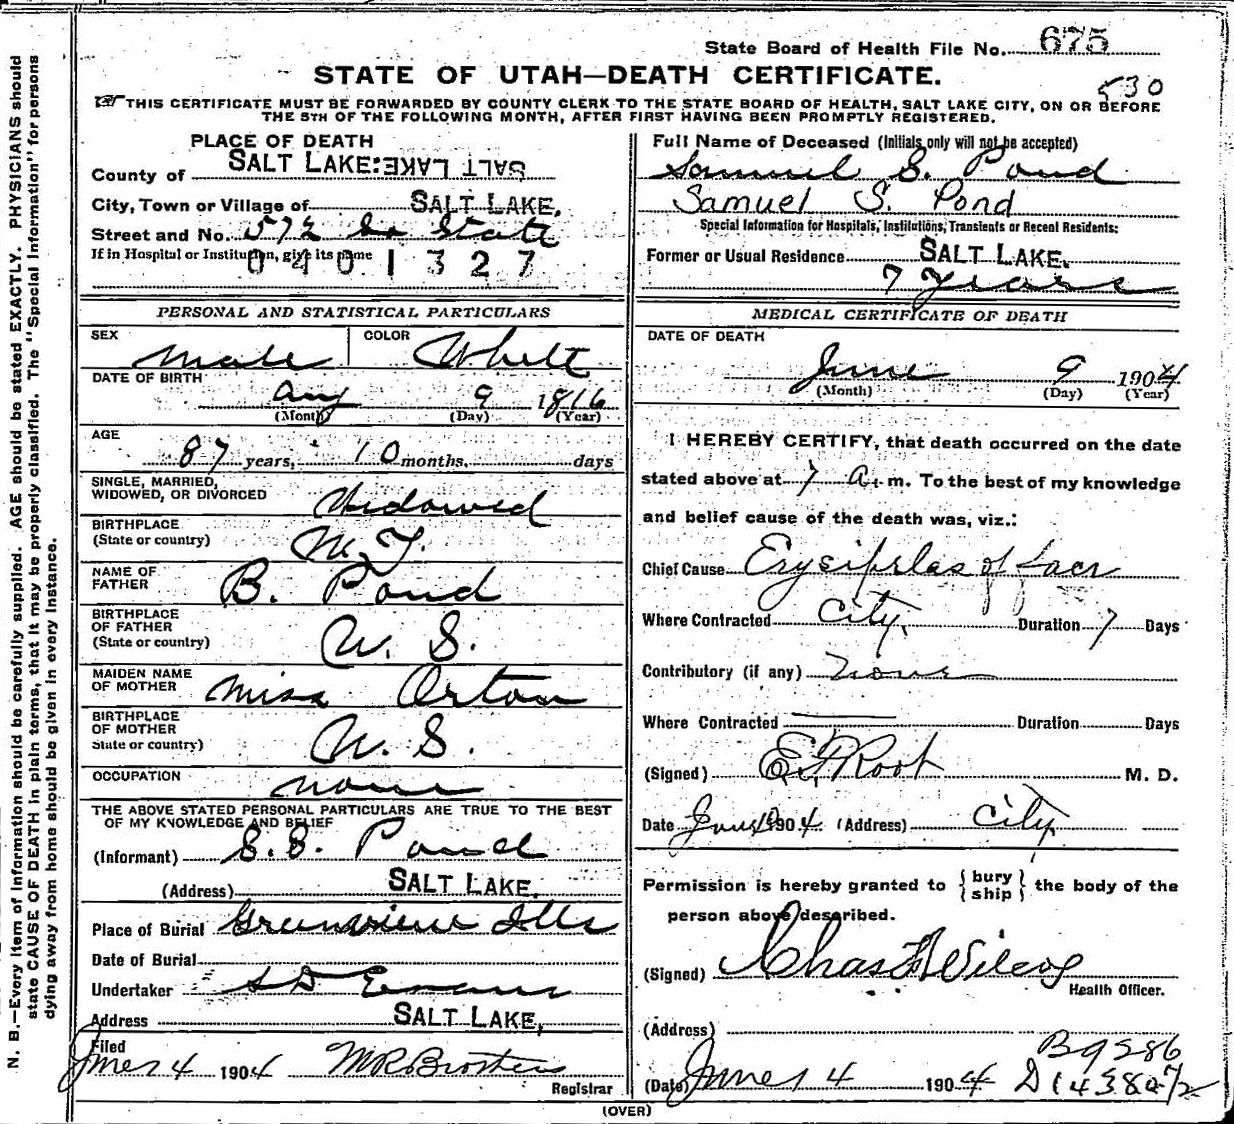 N. B.—Every item of information should be carefully supplied. AGE should be stated EXACTLY. PHYSICIANS should
state CAUSE OF DEATH in plain terms, that it may be properly classified. The "Special Information" for persons
dying away from home should be given in every instance.
State Board of Health File No. 675
STATE OF UTAH—DEATH CERTIFICATE.
530
THIS CERTIFICATE MUST BE FORWARDED BY COUNTY CLERK TO THE STATE BOARD OF HEALTH, SALT LAKE CITY, ON OR BEFORE
THE 5TH OF THE FOLLOWING MONTH, AFTER FIRST HAVING BEEN PROMPTLY REGISTERED.
PLACE OF DEATH
County of SALT LAKE: SALT LAKE
City, Town or Village of SALT LAKE.
Street and No. 572 So State
If in Hospital or Institution, give its name
0401327
PERSONAL AND STATISTICAL PARTICULARS
SEX Male COLOR White
DATE OF BIRTH
Aug 9 1816
(Month) (Day) (Year)
AGE
87 years, 10 months, days
SINGLE, MARRIED,
WIDOWED, OR DIVORCED Widowed
BIRTHPLACE
(State or country) N.Y.
NAME OF
FATHER B. Pond
BIRTHPLACE
OF FATHER
(State or country) U. S.
MAIDEN NAME
OF MOTHER Miss Orton
BIRTHPLACE
OF MOTHER
State or country) U. S.
OCCUPATION none
THE ABOVE STATED PERSONAL PARTICULARS ARE TRUE TO THE BEST
OF MY KNOWLEDGE AND BELIEF
(Informant) S.S. Pond
(Address) SALT LAKE.
Place of Burial Greenview Ills
Date of Burial
Undertaker S D Evans
Address SALT LAKE,
Filed
1904
Registrar
Full Name of Deceased (Initials only will not be accepted)
Samuel S. Pond
Samuel S. Pond
Special Information for Hospitals, Institutions, Transients or Recent Residents:
Former or Usual Residence SALT LAKE.
7 Years
MEDICAL CERTIFICATE OF DEATH
DATE OF DEATH
June 9 1904
(Month) (Day) (Year)
I HEREBY CERTIFY, that death occurred on the date
stated above at 7 A. m. To the best of my knowledge
and belief cause of the death was, viz.:
Chief Cause Erysipelas of face
Where Contracted City, Duration 7 Days
Contributory (if any) none
Where Contracted Duration Days
(Signed) E. F. Root M. D.
Date 1904 (Address) City
Permission is hereby granted to { bury
ship } the body of the
person above described.
(Signed) Chas Wilcox
Health Officer.
(Address)
B9286
(Date) 4 1904
(OVER)